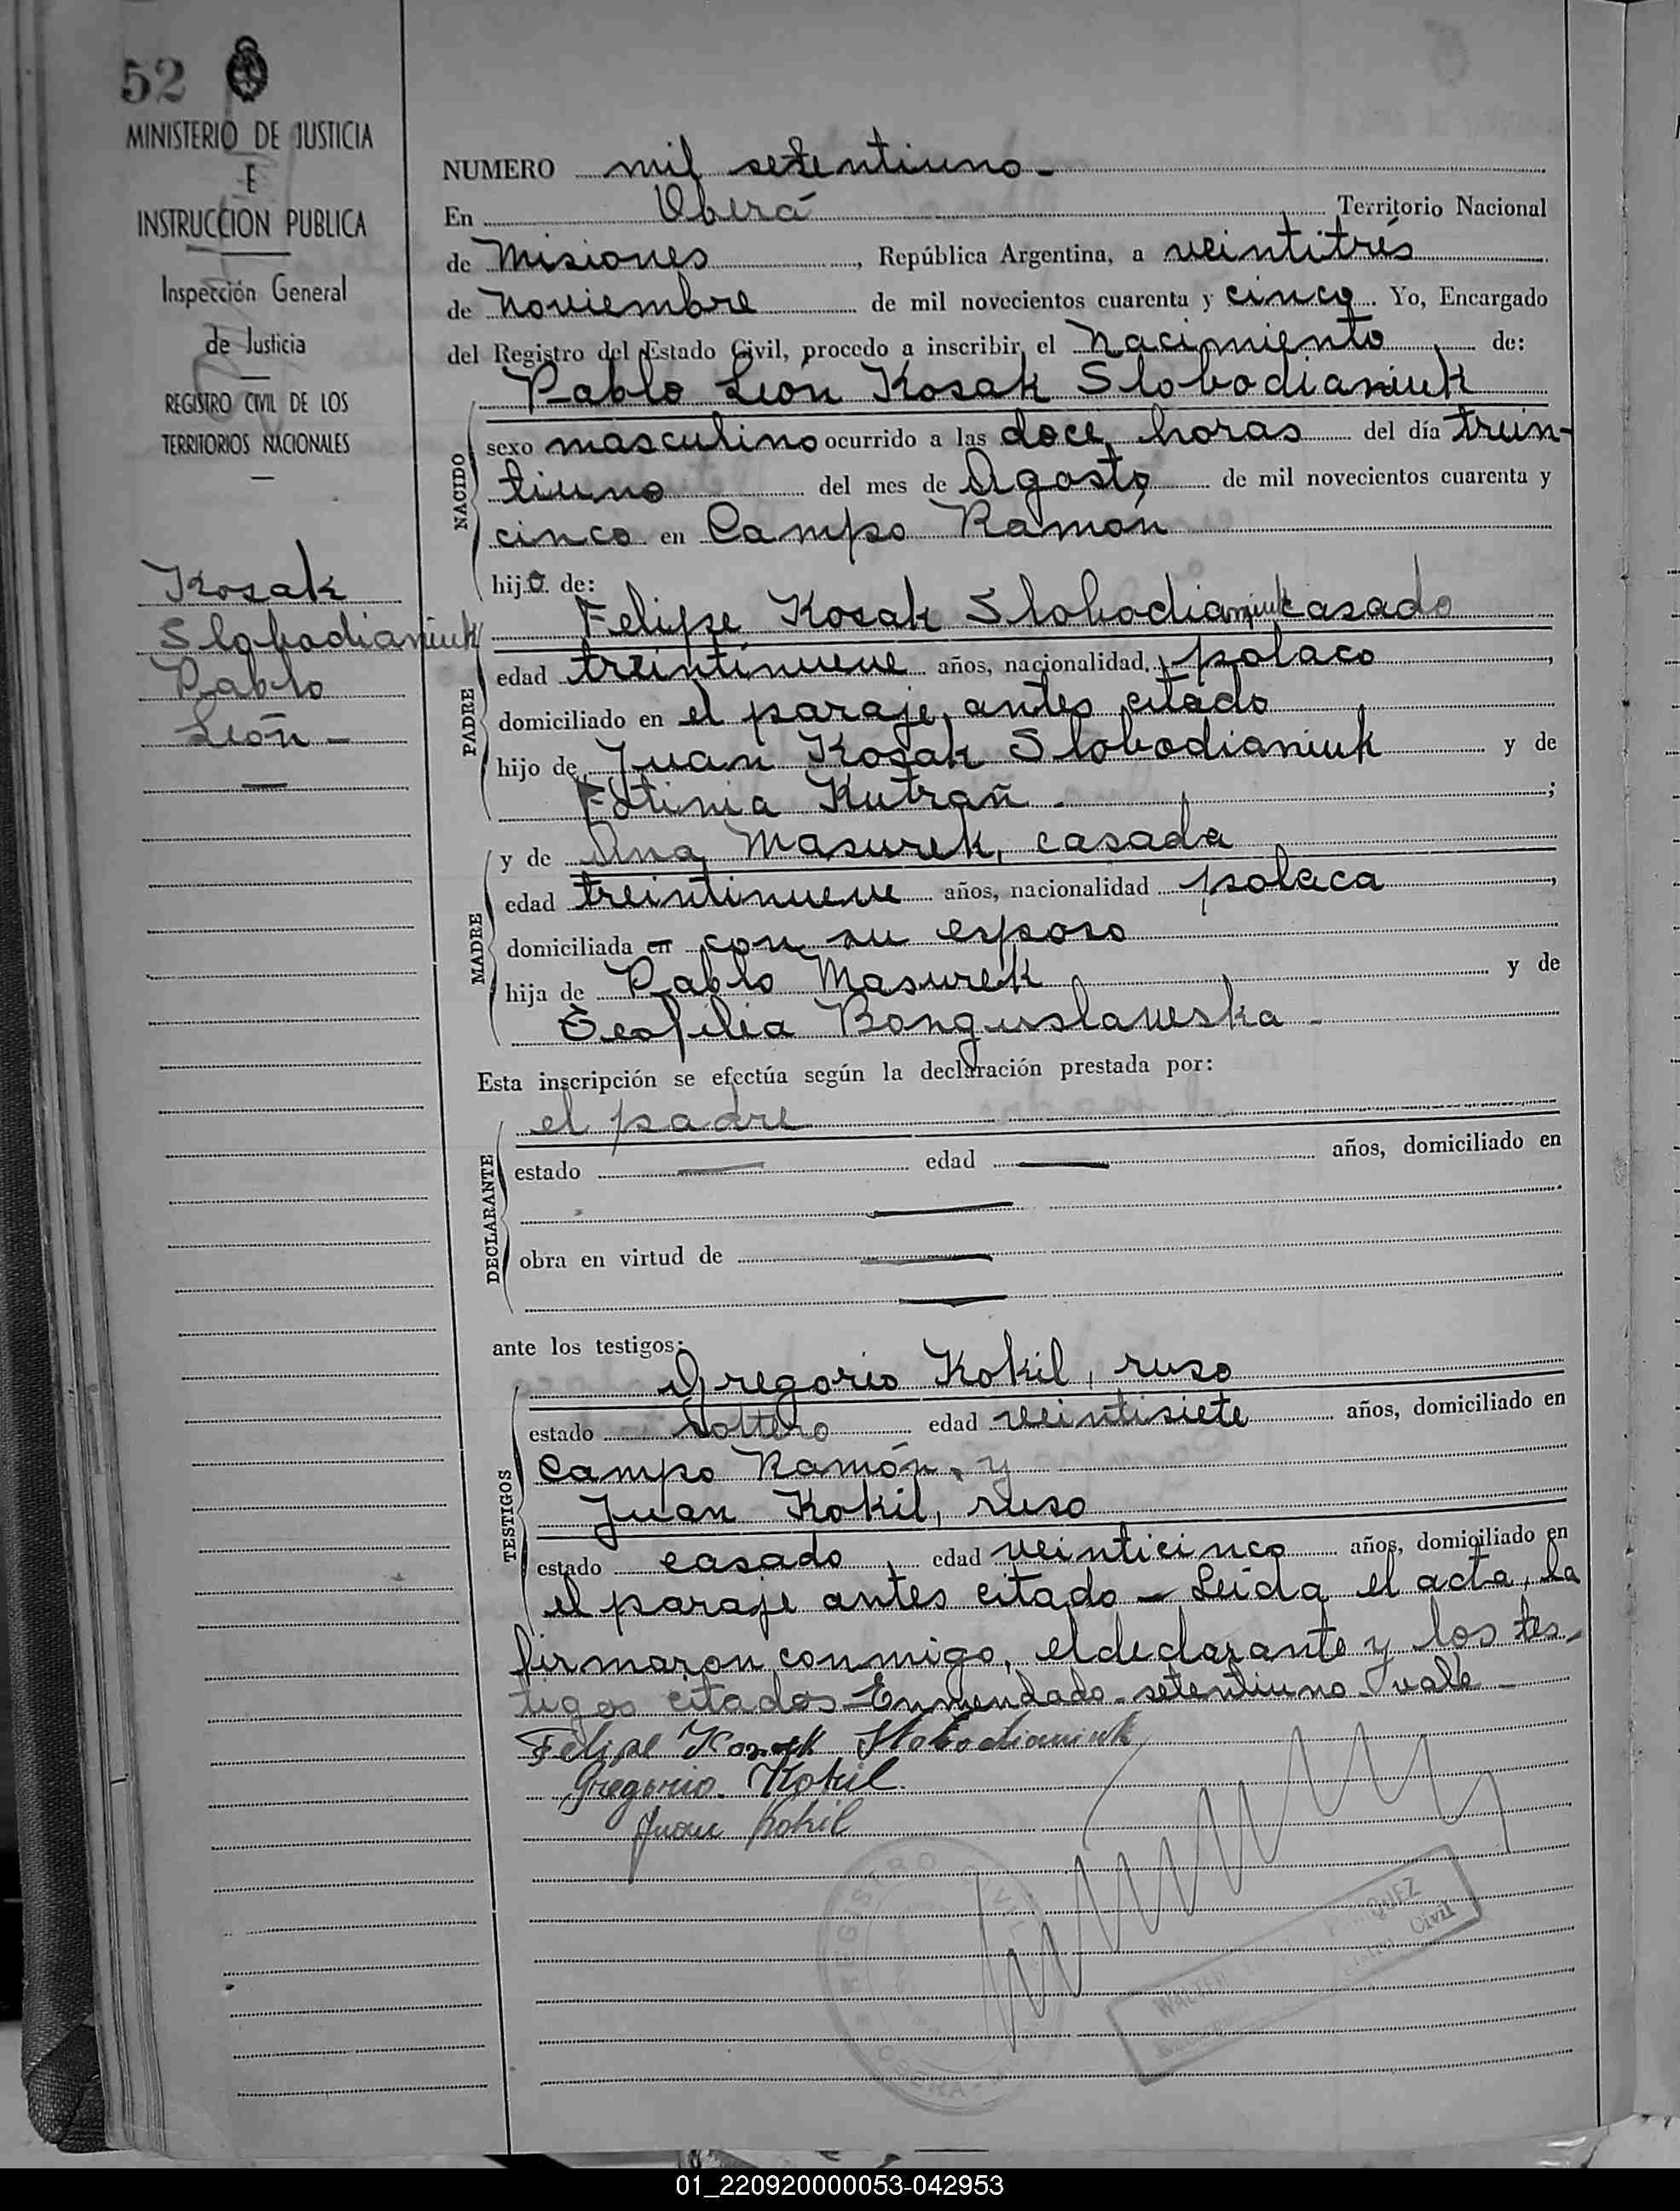 52
MINISTERIO DE JUSTICIA
E
INSTRUCCION PUBLICA
Inspección General
de Justicia
REGISTRO CIVIL DE LOS
TERRITORIOS NACIONALES
Kosak
Slobodianiuk
Pablo
León -
NUMERO mil setentiuno -
En Oberá Territorio Nacional
de Misiones, República Argentina, a veintitrés
de Noviembre de mil novecientos cuarenta y cinco. Yo, Encargado
del Registro del Estado Civil, procedo a inscribir el Nacimiento de:
Pablo León Kosak Slobodianiuk
NACIDO
sexo masculino ocurrido a las doce horas del día trein-
tiuno del mes de Agosto de mil novecientos cuarenta y
cinco en Campo Ramón
hijo de:
PADRE
Felipe Kosak Slobodianiuk casado
edad treintinueve años, nacionalidad, polaco,
domiciliado en el paraje antes citado
hijo de Juan Kosak Slobodianiuk y de
Fotinia Kutrañ -;
MADRE
y de Ana Masurek, casada
edad treintinueve años, nacionalidad polaca,
domiciliada en con su esposo
hija de Pablo Masurek y de
Teofilia Bonguslaweska -
Esta inscripción se efectúa según la declaración prestada por:
DECLARANTE
el padre
estado — edad — años, domiciliado en
—
obra en virtud de —
—
ante los testigos:
TESTIGOS
Gregorio Kokil, ruso
estado soltero edad veintisiete años, domiciliado en
Campo Ramón, y
Juan Kokil, ruso
estado casado, edad veinticinco años, domiciliado en
el paraje antes citado - Leída el acta, la
firmaron conmigo, el declarante y los tes-
tigos citados - Enmendado - setentiuno - vale -
Felipe Kosak Slobodianiuk
Gregorio Kokil
Juan Kokil
REGISTRO CIVIL
WALTER
Civil
01_220920000053-042953